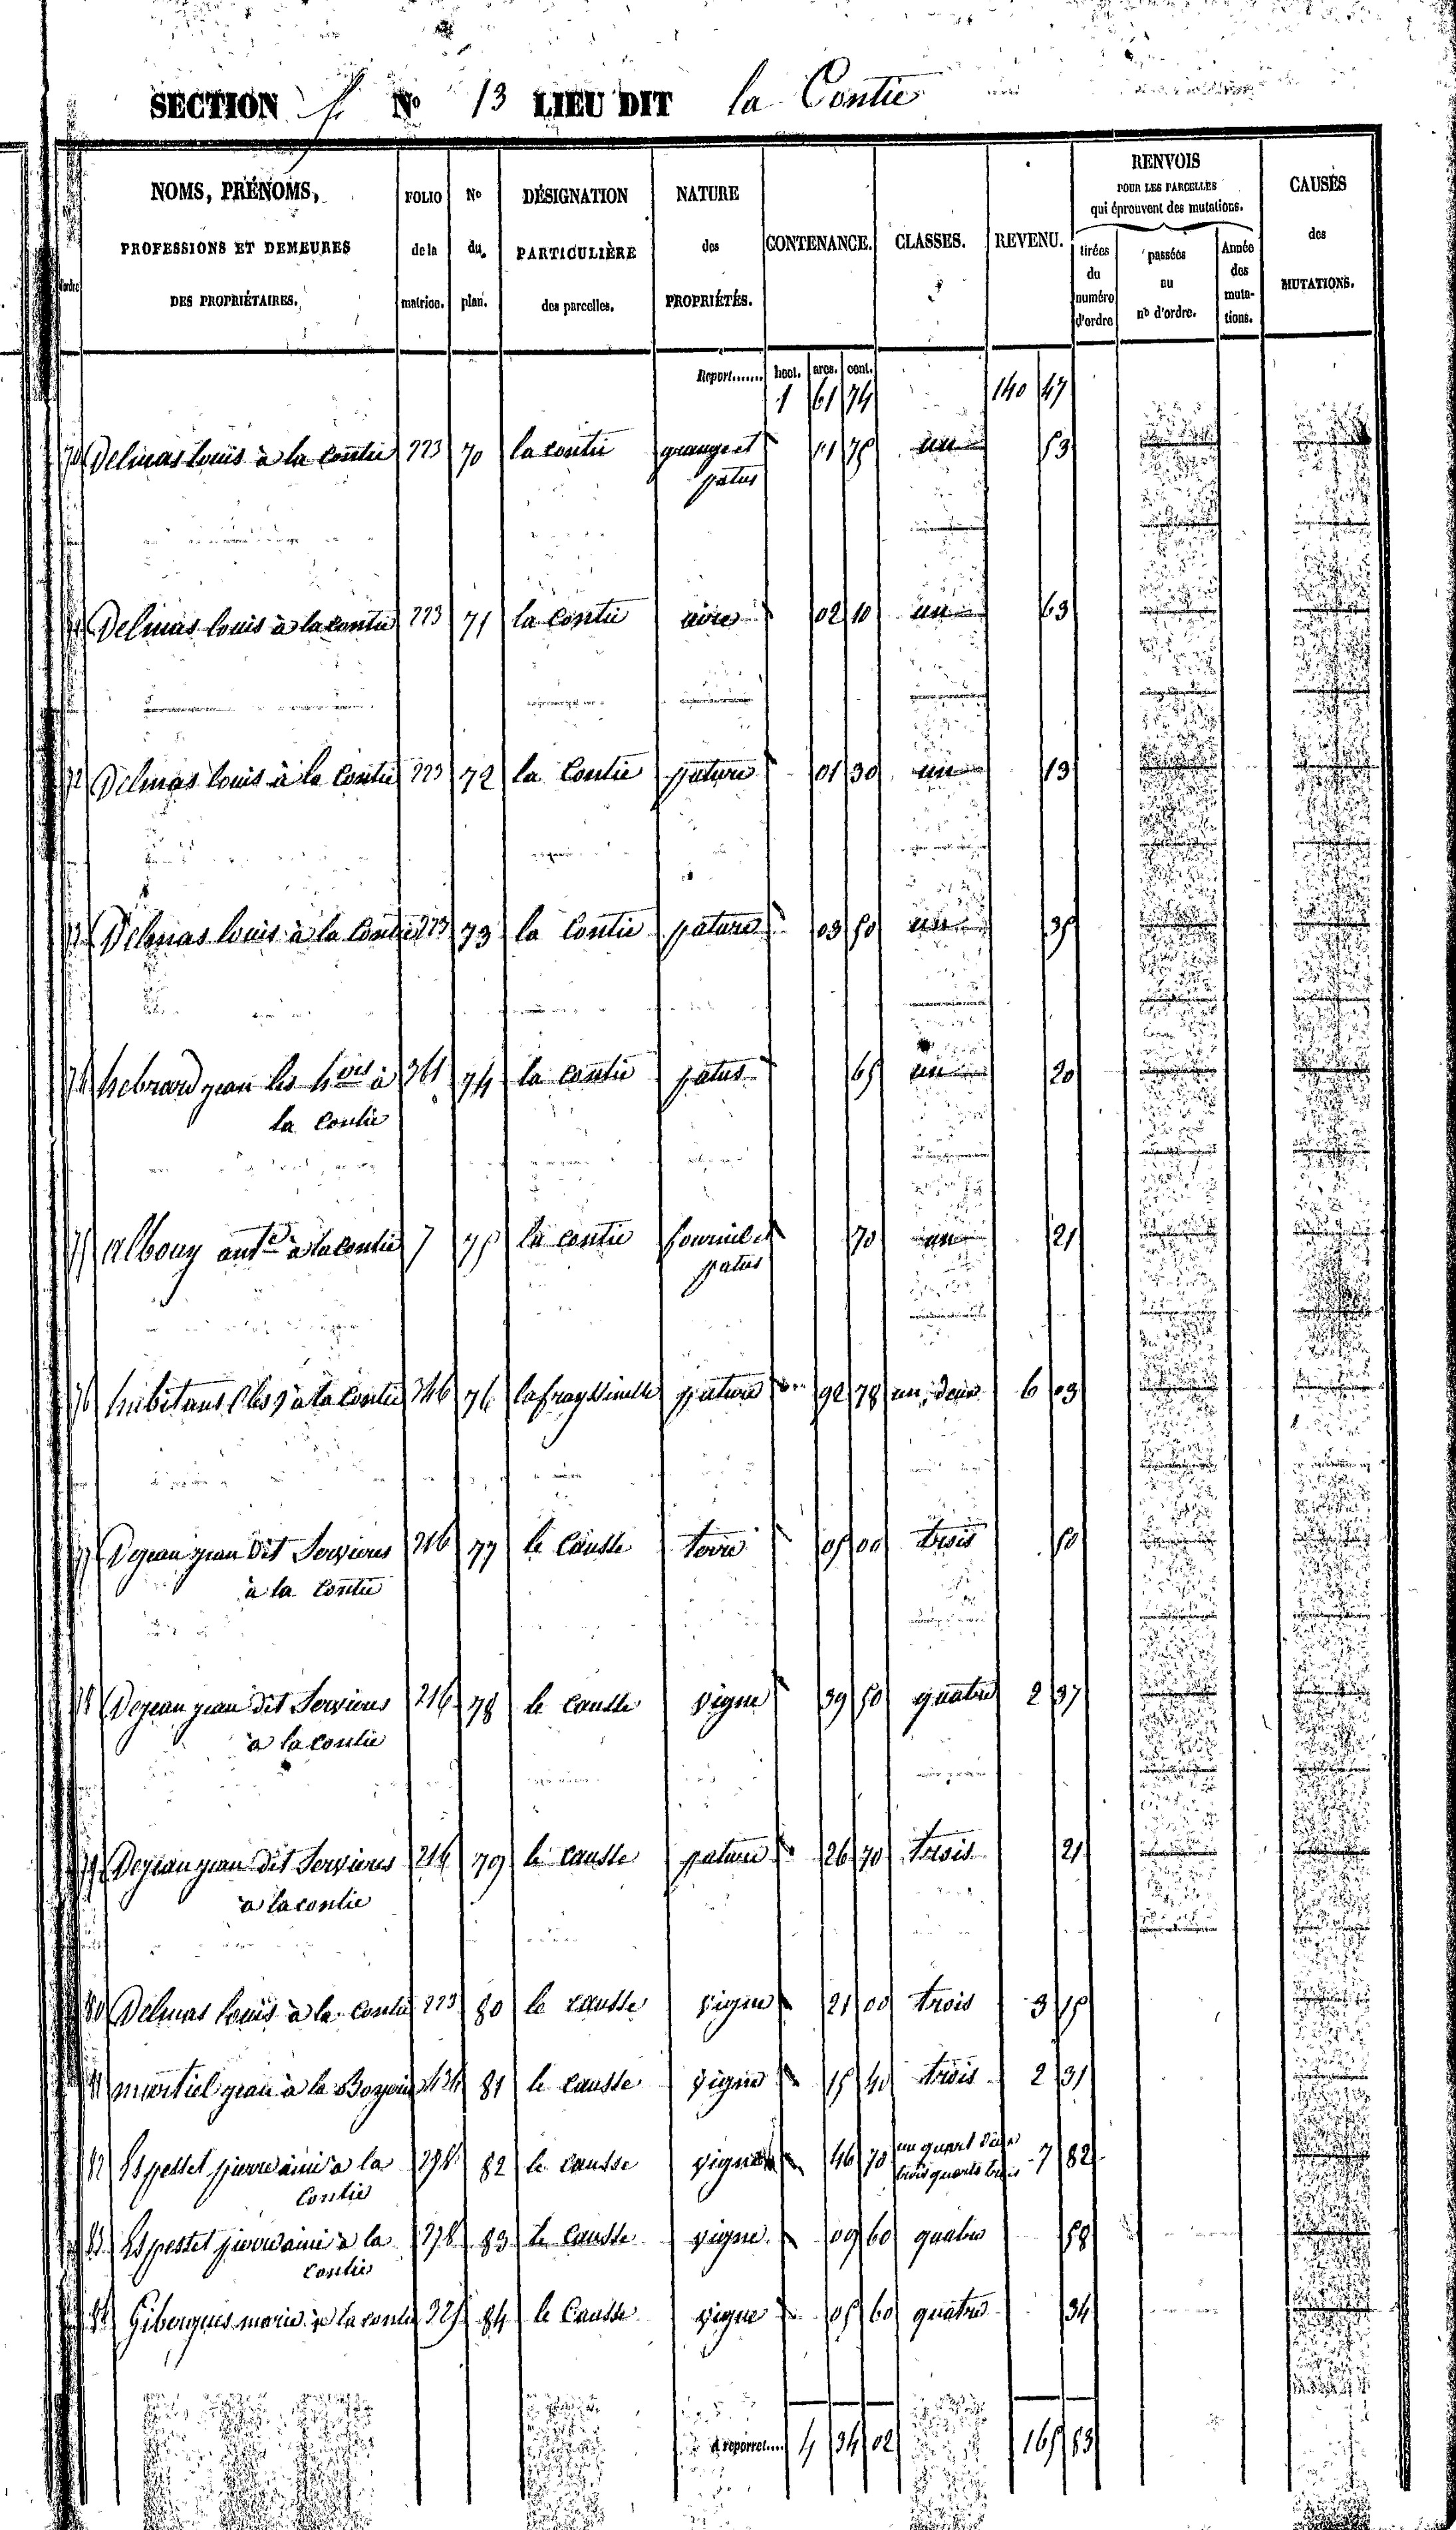 SECTION f. N° 13 LIEU DIT la Contie
NOMS, PRÉNOMS, PROFESSIONS ET DEMEURES DES PROPRIÉTAIRES. FOLIO de la matrice. N° du plan. DÉSIGNATION PARTICULIÈRE des parcelles. NATURE des PROPRIÉTÉS. CONTENANCE. CLASSES. REVENU. RENVOIS POUR LES PARCELLES qui éprouvent des mutations. tirées du numéro d'ordre passées au n° d'ordre. Année des mutations. CAUSES des MUTATIONS.
Report....... hect. ares. cent.
1 61 74 140 47
70 Delmas louis à la contie 223 70 la contie grange et 01 75 un 53
patus
71 Delmas louis à la contie 223 71 la contie aire 02 10 un 63
72 Delmas louis à la Contie 223 72 la Contie pature 01 30 un 13
73 Delmas louis à la Contie 223 73 la Contie pature 03 50 un 35
74 hebrard jean les h.oirs à 361 74 la contie patus 65 un 20
la Contie
75 albouy ant.e à la contie 7 75 la contie fournil et 70 un 21
patus
76 habitans (les) à la Contie 346 76 lafrayssinelle pature 92 78 un, deux 6 03
77 Dejean jean dit Servieres 216 77 le Causse terre 05 00 trois 50
à la Contie
78 Dejean jean dit Servieres 216 78 le causse vigne 39 50 quatre 2 37
a la contie
79 Dejean jean dit Servieres 216 79 le causse pature 26 70 trois 21
a la contie
80 Delmas louis à la contie 223 80 le causse vigne 21 00 trois 3 15
81 martiel jean à la 434 81 le causse vigne 15 40 trois 2 31
82 Espestet pierre ainé a la 298 82 le causse vigne 46 70 un quart deux 7 82
Contie trois quarts trois
83 Espestet pierre ainé à la 298 83 le causse vigne 09 60 quatre 58
Contie
84 Gibergues marie à la contie 325 84 le Causse vigne 05 60 quatre 34
A reporter.... 4 34 02 165 83